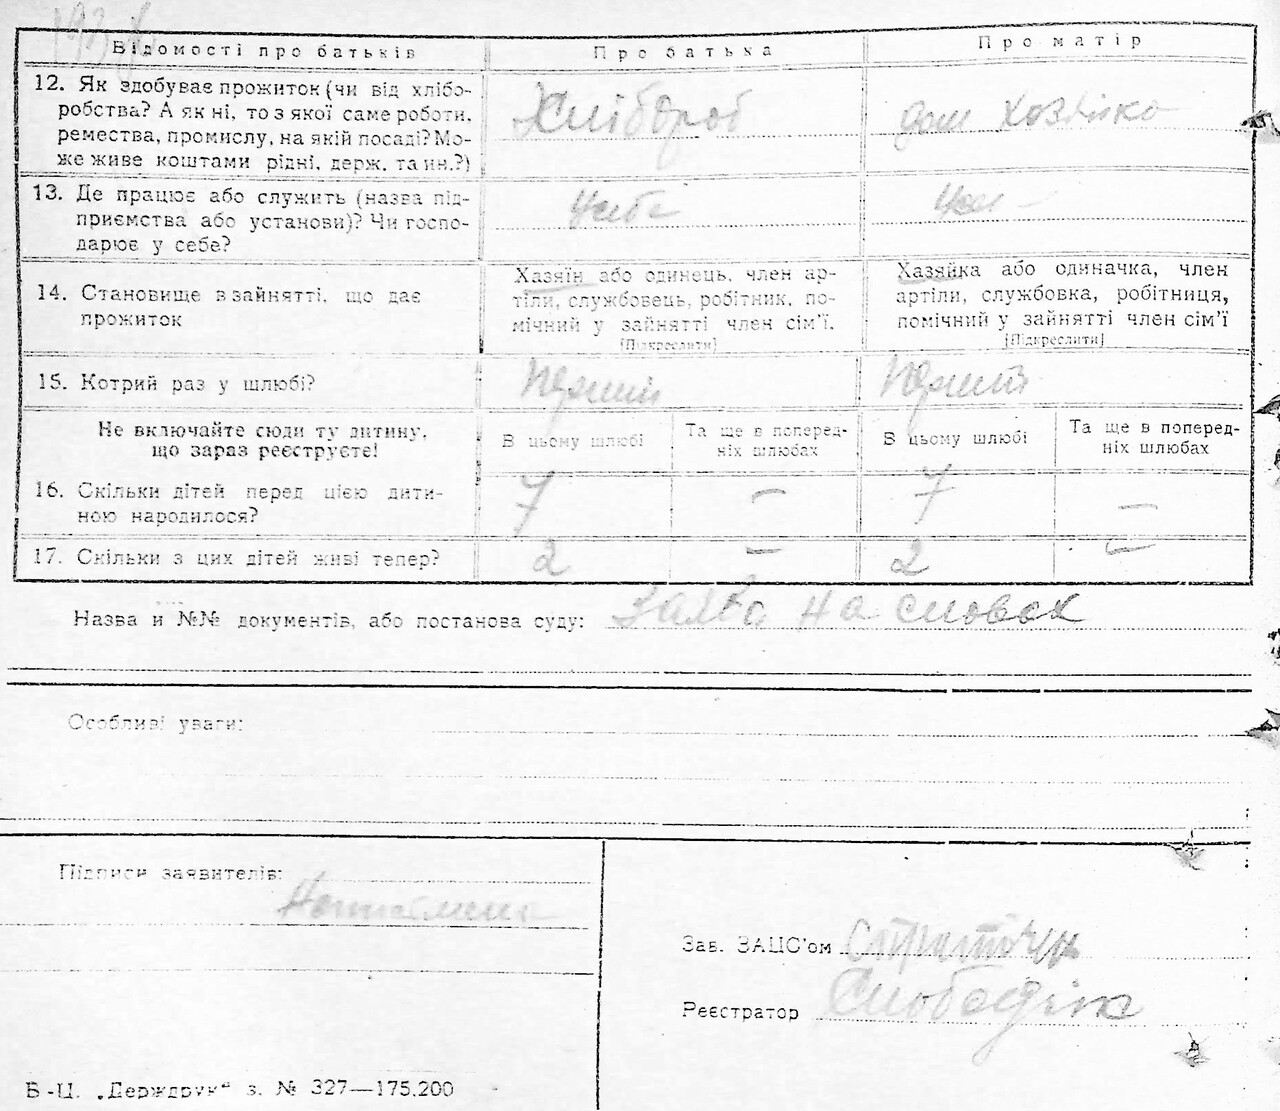 Відомості про батьків
Про батька
Про матір
12. Як здобуває прожиток (чи від хлібо-
робства? А як ні, то з якої саме роботи,
ремества, промислу, на якій посаді? Мо-
же живе коштами рідні, держ. та ин.?)
Хлібороб
дом хозяйка
13. Де працює або служить (назва під-
приємства або установи)? Чи госпо-
дарює у себе?
14. Становище в зайнятті, що дає
прожиток
Хазяїн або одинець, член ар-
тіли, службовець, робітник, по-
мічний у зайнятті член сім'ї.
[Підкреслити]
Хазяйка або одиначка, член
артіли, службовка, робітниця,
помічний у зайнятті член сім'ї
[Підкреслити]
15. Котрий раз у шлюбі?
Перший
Перший
Не включайте сюди ту дитину,
що зараз реєструєте!
В цьому шлюбі
Та ще в поперед-
ніх шлюбах
В цьому шлюбі
Та ще в поперед-
ніх шлюбах
16. Скільки дітей перед цією дити-
ною народилося?
7 — 7 —
17. Скільки з цих дітей живі тепер?
2 — 2 —
Назва и №№ документів, або постанова суду: Заява на словах
Особливі уваги:
Підписи заявителів:
Зав. ЗАЦС'ом
Реєстратор
Б-Ц. „Держдрук“ з. № 327—175.200